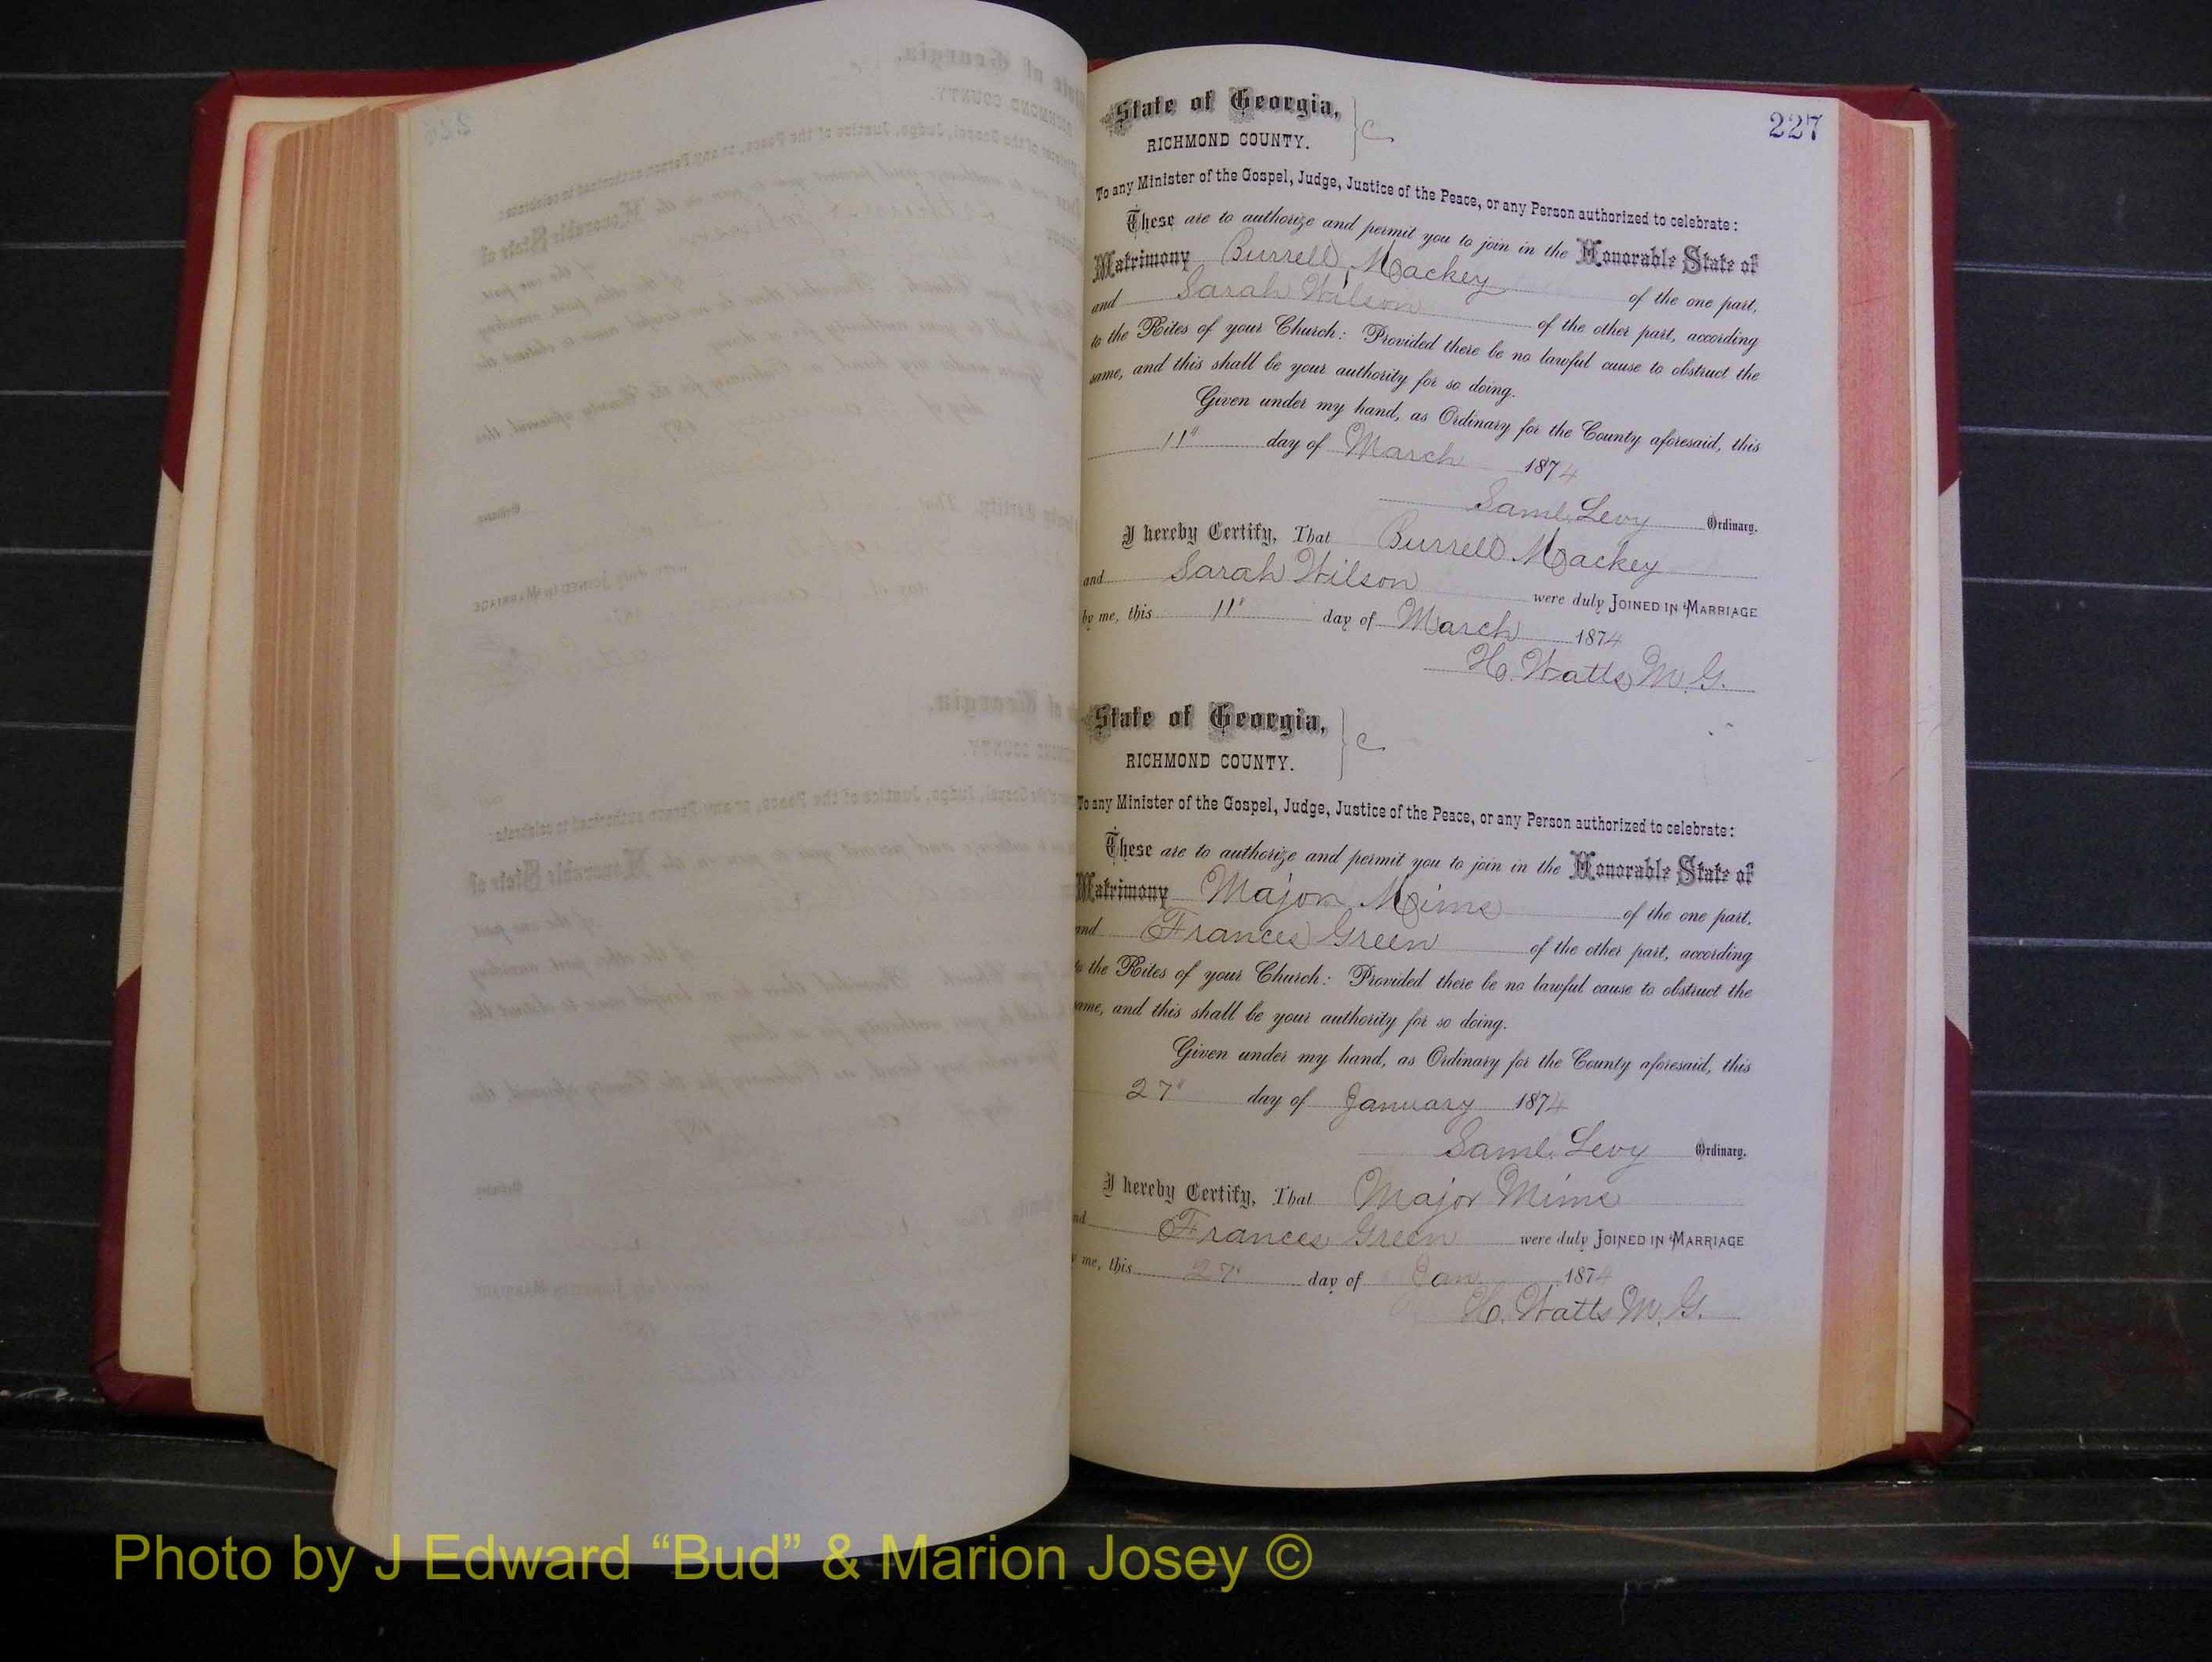 227
State of Georgia,
RICHMOND COUNTY. } C
To any Minister of the Gospel, Judge, Justice of the Peace, or any Person authorized to celebrate:
These are to authorize and permit you to join in the Honorable State of
Matrimony Burrell Mackey of the one part,
and Sarah Wilson of the other part, according
to the Rites of your Church: Provided there be no lawful cause to obstruct the
same, and this shall be your authority for so doing.
Given under my hand, as Ordinary for the County aforesaid, this
11" day of March 1874
Saml. Levy Ordinary.
I hereby Certify, That Burrell Mackey
and Sarah Wilson were duly JOINED IN MARRIAGE
by me, this 11" day of March 1874
H. Watts M.G.
State of Georgia,
RICHMOND COUNTY. } C
To any Minister of the Gospel, Judge, Justice of the Peace, or any Person authorized to celebrate:
These are to authorize and permit you to join in the Honorable State of
Matrimony Major Mims of the one part,
and Frances Green of the other part, according
to the Rites of your Church: Provided there be no lawful cause to obstruct the
same, and this shall be your authority for so doing.
Given under my hand, as Ordinary for the County aforesaid, this
27" day of January 1874
Saml. Levy Ordinary.
I hereby Certify, That Major Mims
nd Frances Green were duly JOINED IN MARRIAGE
y me, this 27" day of Jan 1874
H. Watts M.G.
Photo by J Edward “Bud” & Marion Josey ©